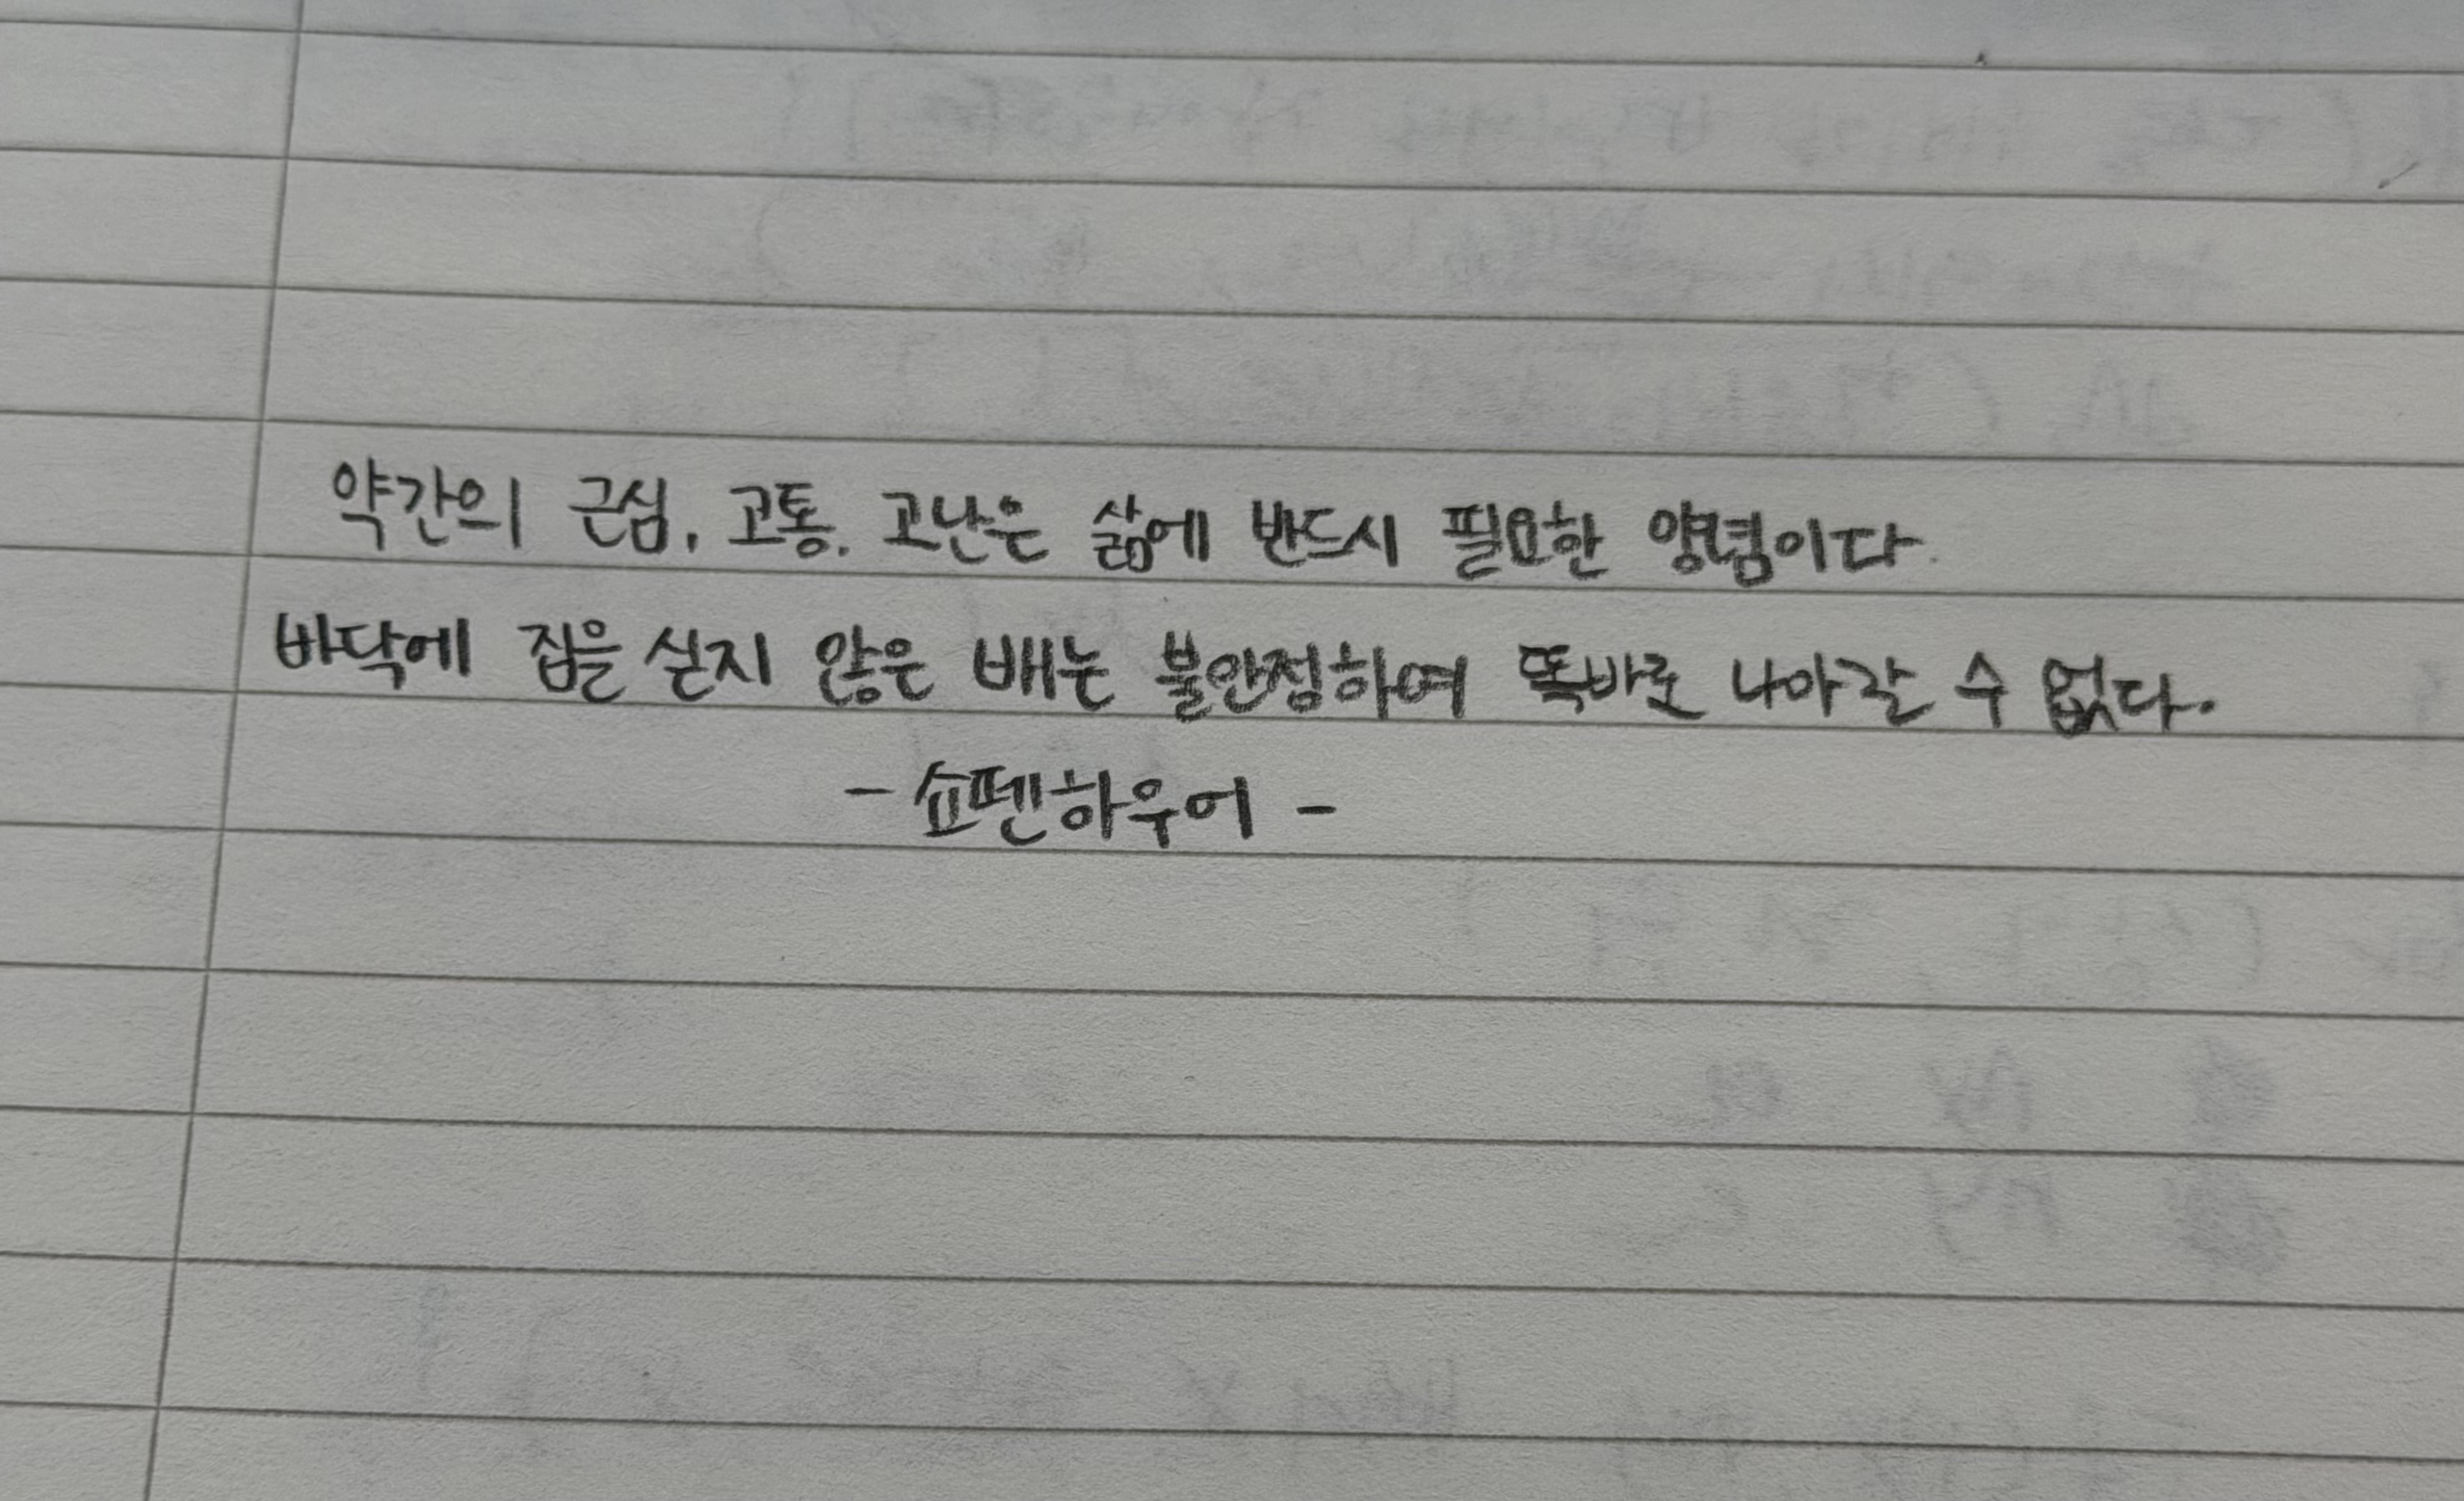 약간의 근심, 고통, 고난은 삶에 반드시 필요한 양념이다.
바닥에 짐을 싣지 않은 배는 불안정하여 똑바로 나아갈 수 없다.
- 쇼펜하우어 -